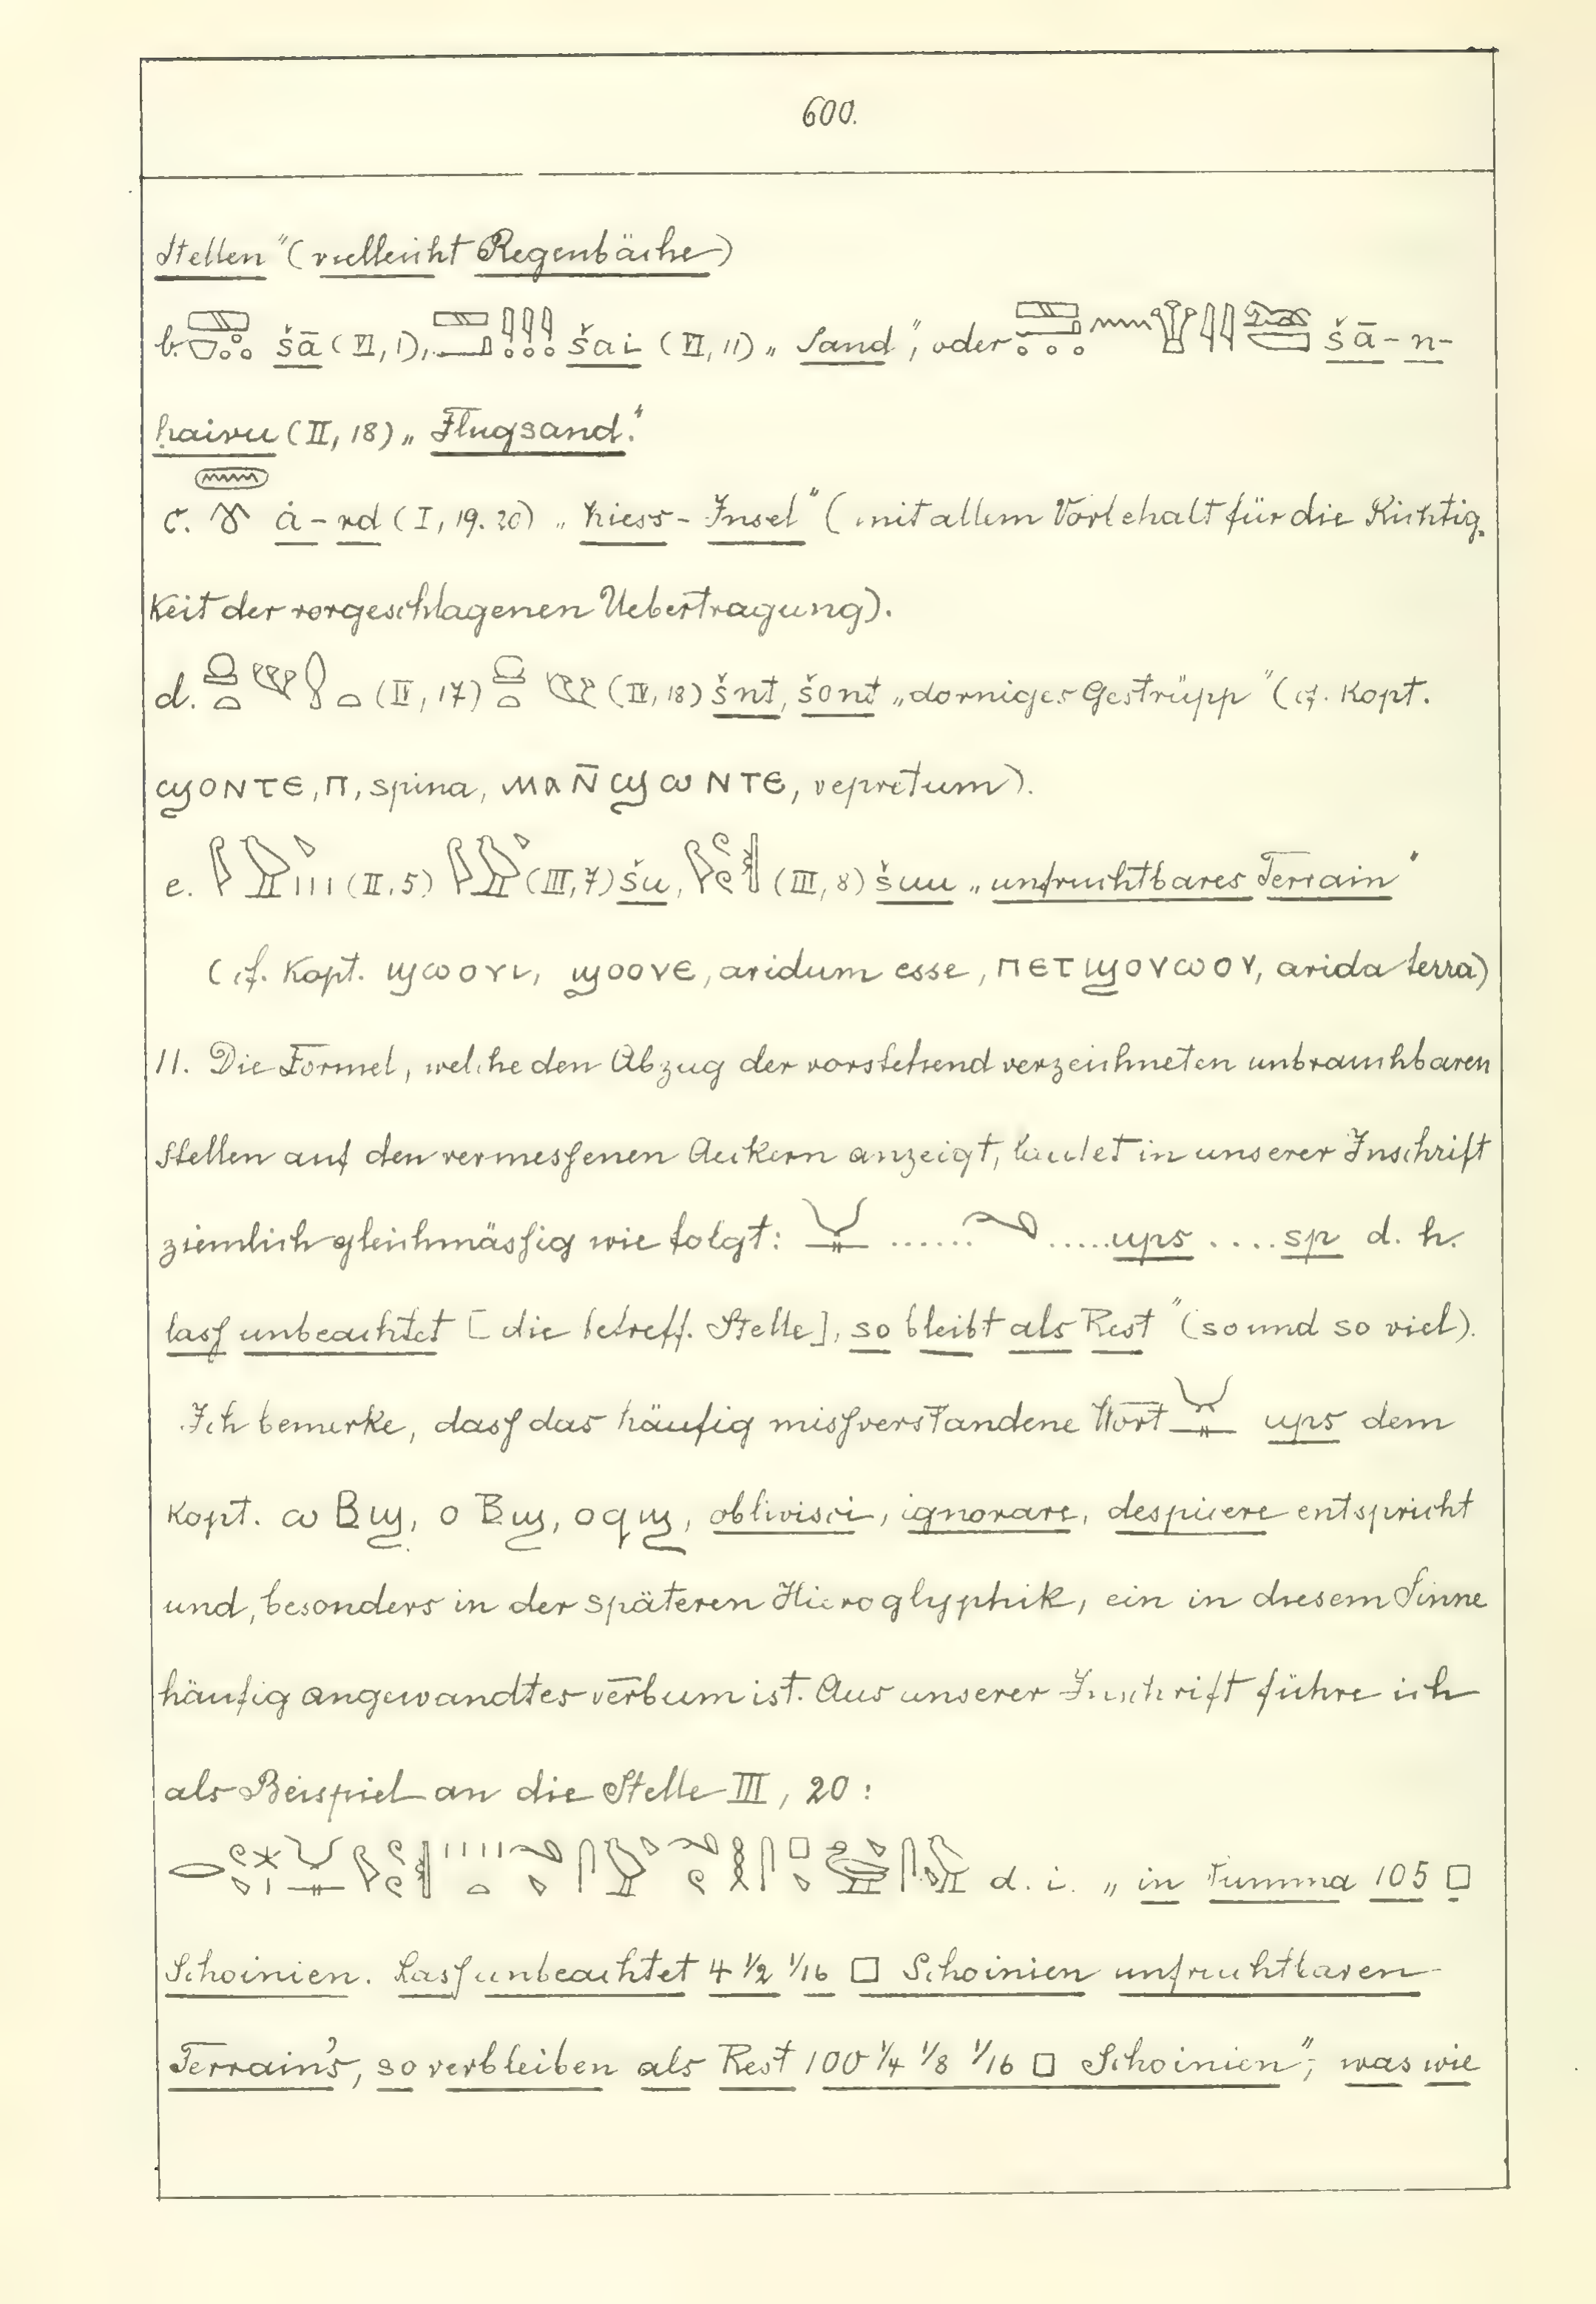 600.
Stellen" (vielleicht Regenbäche)
b. šā (VI, 1), šai (VI, 11) „Sand", oder šā-n-
haivu (II, 18) „Flugsand."
c. ȧ-rd (I, 19. 20) „Kiess-Insel" (mit allem Vorbehalt für die Richtig-
keit der vorgeschlagenen Uebertragung).
d. (IV, 17) (IV, 18) šnt, šont „dorniges Gestrüpp" (cf. Kopt.
ϣONTE, Π, spina, ⲘⲀN̄ϢⲰNTE, vepretum).
e. (II, 5) (III, 7) šu, (III, 8) šuu „unfruchtbares Terrain"
(cf. Kopt. ϣⲱⲟⲩⲓ, ϣⲟⲟⲩⲉ, aridum esse, ⲡⲉⲧϣⲟⲩⲱⲟⲩ, arida terra)
11. Die Formel, welche den Abzug der vorstehend verzeichneten unbrauchbaren
Stellen auf den vermessenen Aeckern anzeigt, lautet in unserer Inschrift
ziemlich gleichmässig wie folgt: ...... ..... ups .... sp d. h.
lass unbeachtet [die betreff. Stelle], so bleibt als Rest" (so und so viel).
Ich bemerke, dass das häufig missverstandene Wort ups dem
Kopt. ⲱⲃϣ, ⲟⲃϣ, ⲟϥϣ, oblivisci, ignorare, despicere entspricht
und, besonders in der späteren Hieroglyphik, ein in diesem Sinne
häufig angewandtes verbum ist. Aus unserer Inschrift führe ich
als Beispiel an die Stelle III, 20:
d. i. „in Summa 105 □
Schoinien. Lass unbeachtet 4 1/2 1/16 □ Schoinien unfruchtbaren
Terrain's, so verbleiben als Rest 100 1/4 1/8 1/16 □ Schoinien", was wie